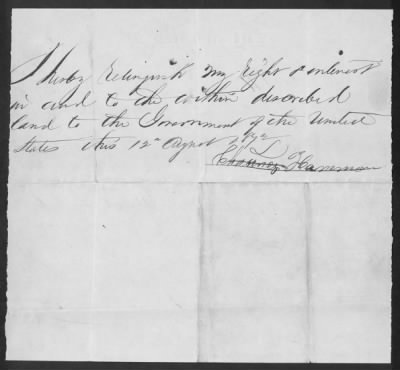 I hereby Relinquish my Right & interest
in and to the within described
land to the Government of the United
States this 12" August
Hamman